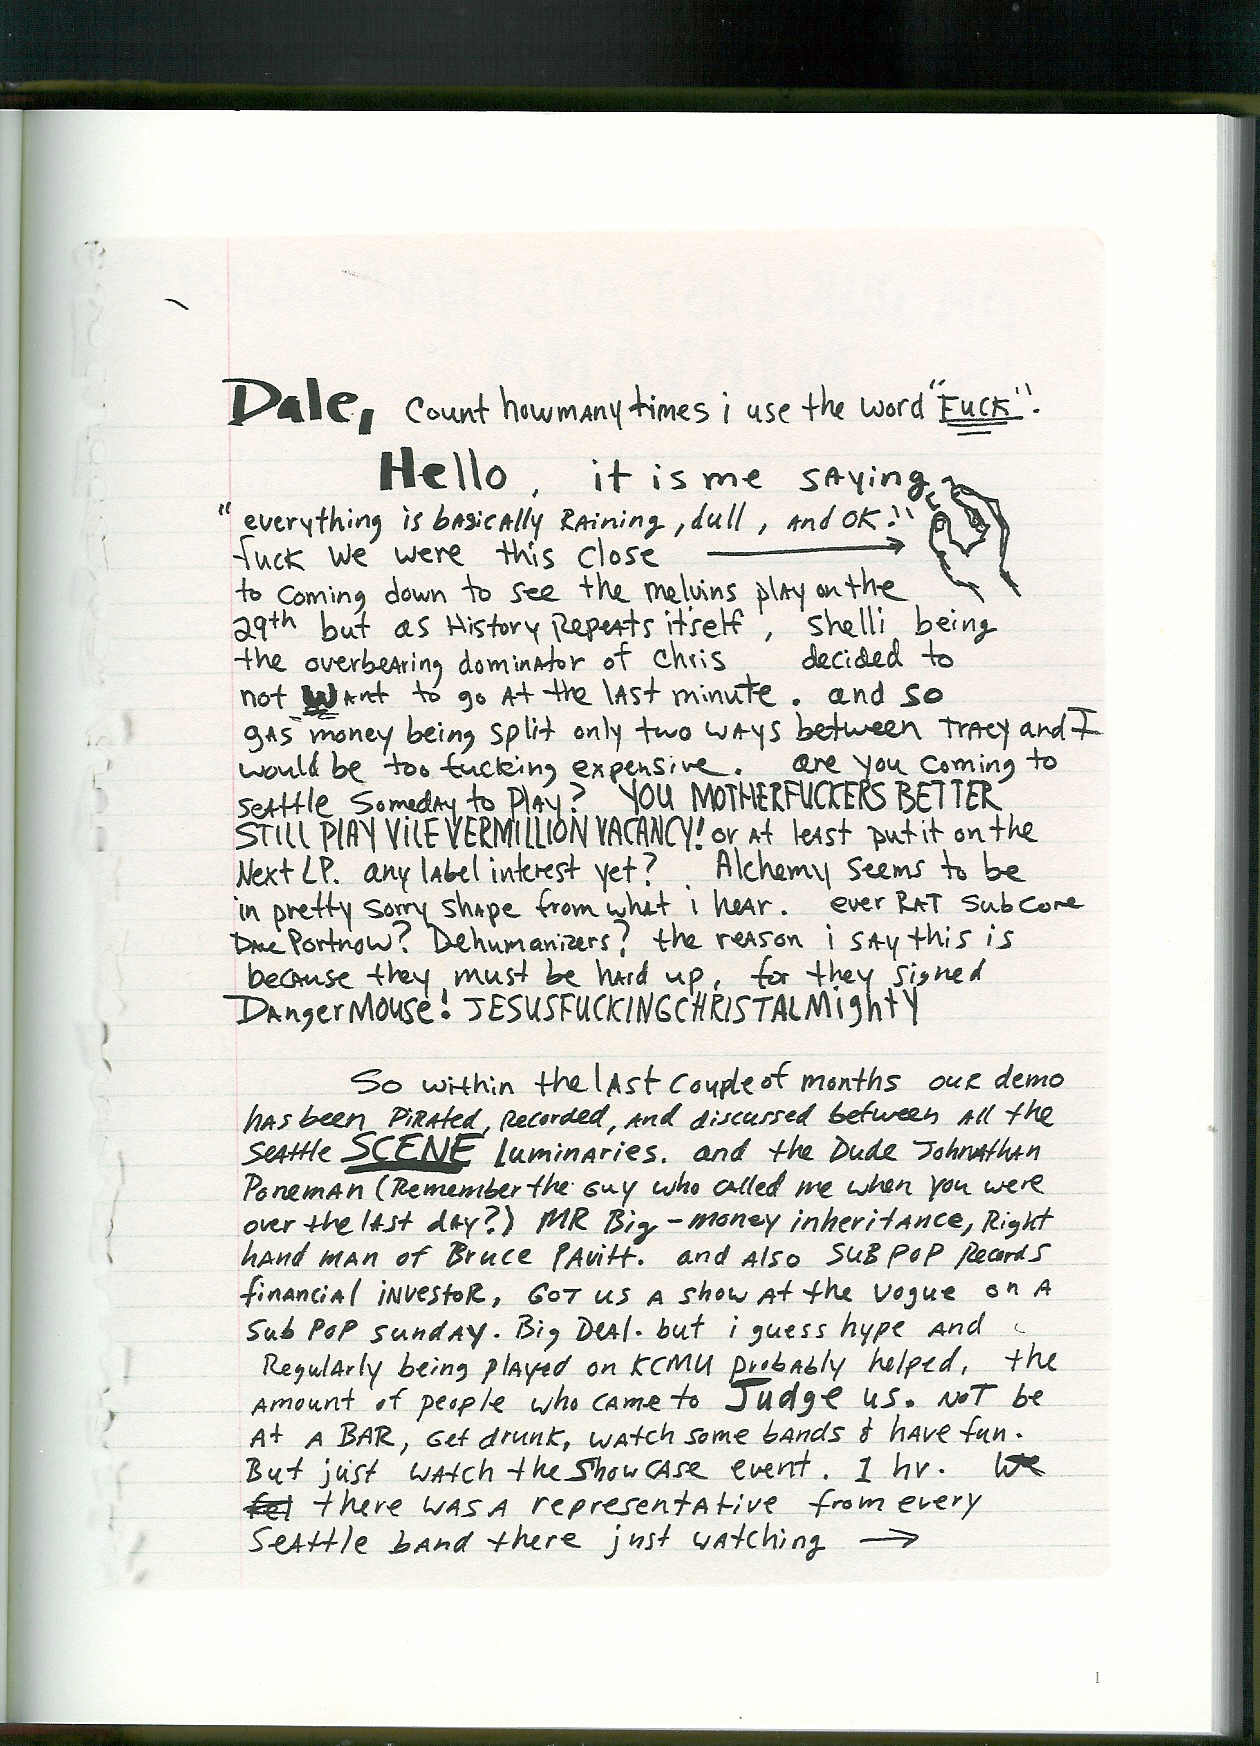 Dale, Count how many times i use the word "FUCK".
Hello, it is me saying
"everything is basically Raining, dull, and OK."
fuck we were this close
to coming down to see the melvins play on the
29th but as History Repeats itself, shelli being
the overbearing dominator of Chris decided to
not Want to go at the last minute. and so
gas money being split only two ways between Tracy and I
would be too fucking expensive. are you coming to
Seattle Someday to Play? YOU MOTHERFUCKERS BETTER
STILL PLAY VILE VERMILLION VACANCY! or at least put it on the
Next LP. any label interest yet? Alchemy seems to be
in pretty sorry shape from what i hear. ever RAT Subcore
Portnow? Dehumanizers? the reason i say this is
because they must be hard up, for they signed
DangerMouse! JESUSFUCKINGCHRISTALMighty
So within the last couple of months our demo
has been PiRated, Recorded, and discussed between all the
Seattle SCENE luminaries. and the Dude Johnathan
Poneman (Remember the Guy who called me when you were
over the last day?) MR Big-money inheritance, Right
hand man of Bruce Pavitt. and also SUB POP Records
financial investor, GOT us a show at the Vogue on a
Sub Pop Sunday. Big DEAl. but i guess hype and
Regularly being played on KCMU probably helped, the
amount of people who came to Judge us. NOT be
at a BAR, Get drunk, watch some bands & have fun.
But just watch the Showcase event. 1 hr. We
fel there was a representative from every
Seattle band there just watching →
1